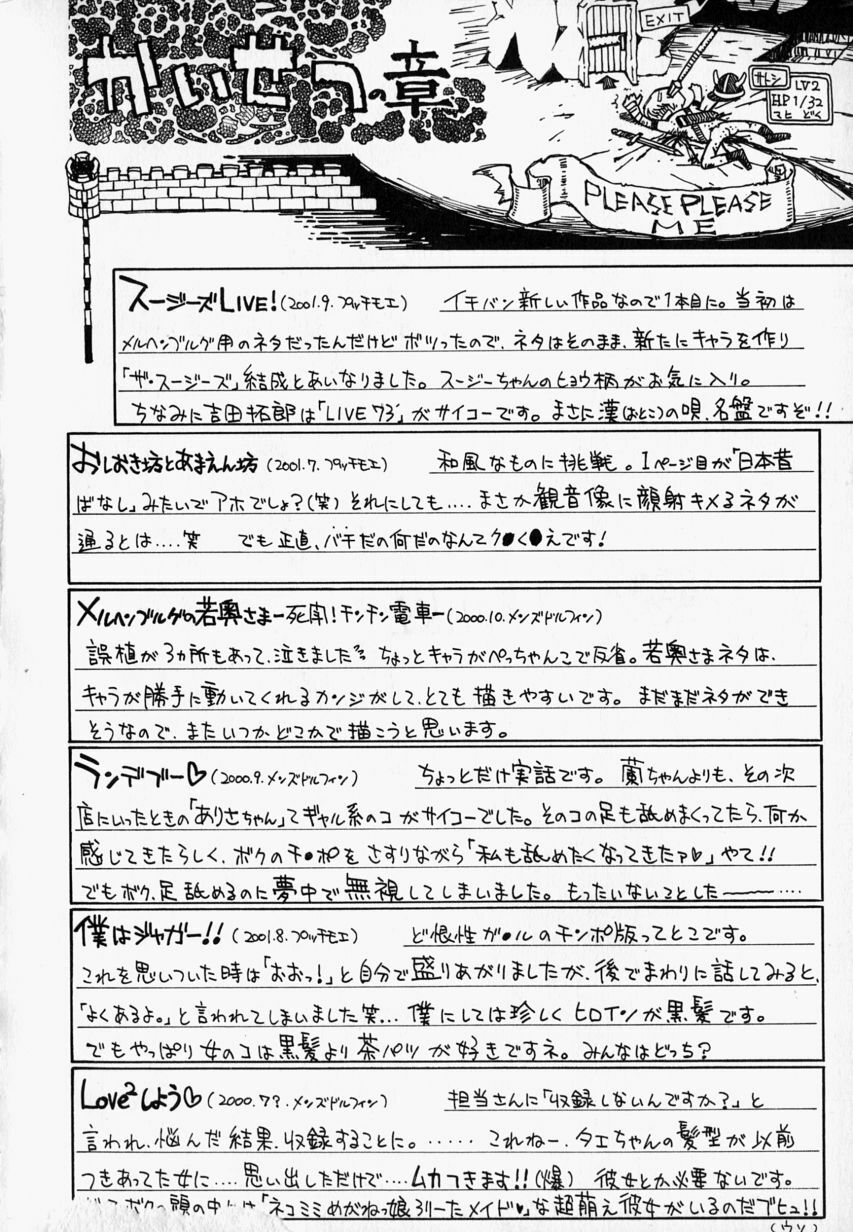 かいせつの章
EXIT
サトシ LV2
HP 1/32
マヒ どく
PLEASE PLEASE
ME
スージーズLIVE!(2001.9.プッチモエ) イチバン新しい作品なので1本目に。当初は
メルヘンブルゲ用のネタだったんだけどボツったので、ネタはそのまま、新たにキャラを作り
「ザ・スージーズ」結成とあいなりました。スージーちゃんのヒョウ柄がお気に入り。
ちなみに吉田拓郎は「LIVE'73」がサイコーです。まさに漢(おとこ)の唄、名盤ですぞ!!
おしおき坊とあまえん坊(2001.7.プッチモエ) 和風なものに挑戦。1ページ目が「日本昔
ばなし」みたいでアホでしょ?(笑)それにしても....まさか観音像に顔射キメるネタが
通るとは....笑 でも正直、バチだの何だのなんてク●く●えです!
メルヘンブルゲの若奥さまー死闘!チンチン電車ー(2000.10.メンズドルフィン)
誤植が3ヵ所もあって、泣きました ちょっとキャラがぺっちゃんこで反省。若奥さまネタは、
キャラが勝手に動いてくれるカンジがして、とても描きやすいです。まだまだネタができ
そうなので、またいつかどこかで描こうと思います。
ランデブー♡(2000.9.メンズドルフィン) ちょっとだけ実話です。蘭ちゃんよりも、その次
店にいったときの「ありさちゃん」てギャル系のコがサイコーでした。そのコの足も舐めまくってたら、何か
感じてきたらしく、ボクのチ●ポをさすりながら「私も舐めたくなってきたァ♡」やて!!
でもボク、足舐めるのに夢中で無視してしまいました。もったいないことした〜〜....
僕はジャガー!!(2001.8.プッチモエ) ど根性ガ●ルのチンポ版ってとこです。
これを思いついた時は「おおっ!」と自分で盛りあがりましたが、後でまわりに話してみると、
「よくあるよ。」と言われてしまいました笑... 僕にしては珍しくヒロインが黒髪です。
でもやっぱり女のコは黒髪より茶パツが好きですネ。みんなはどっち?
Love²しよう♡(2000.7?.メンズドルフィン) 担当さんに「収録しないんですか?」と
言われ、悩んだ結果、収録することに。......これねー、タエちゃんの髪型が以前
つきあってた女に....思い出しただけで....ムカつきます!!(爆) 彼女とか必要ないです。
ボクの頭の中には「ネコミミめがねっ娘ろりーたメイド♥」な超萌え彼女がいるのだブヒュ!!
(ウソ)